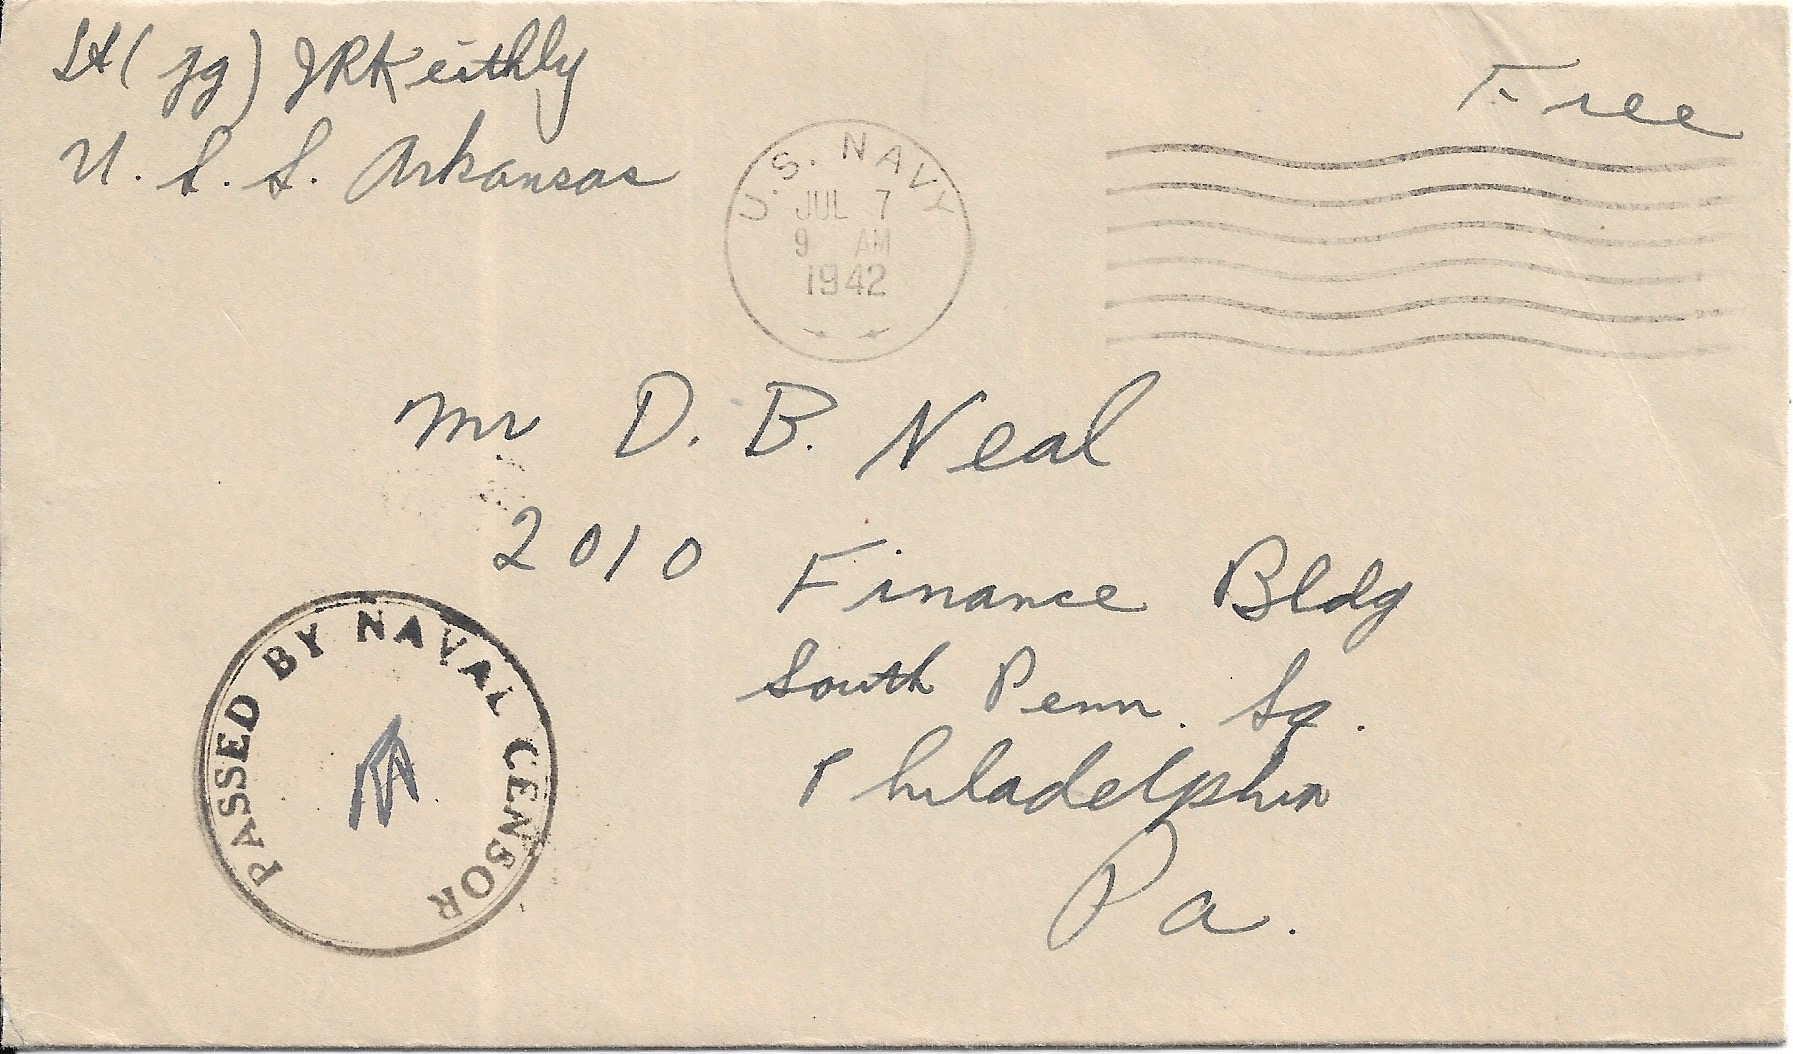 Lt (jg) JRKeithly
U.S.S. Arkansas
Free
U.S. NAVY
JUL 7
9 AM
1942
Mr D. B. Neal
2010 Finance Bldg
South Penn. Sq.
Philadelphia
Pa.
PASSED BY NAVAL CENSOR